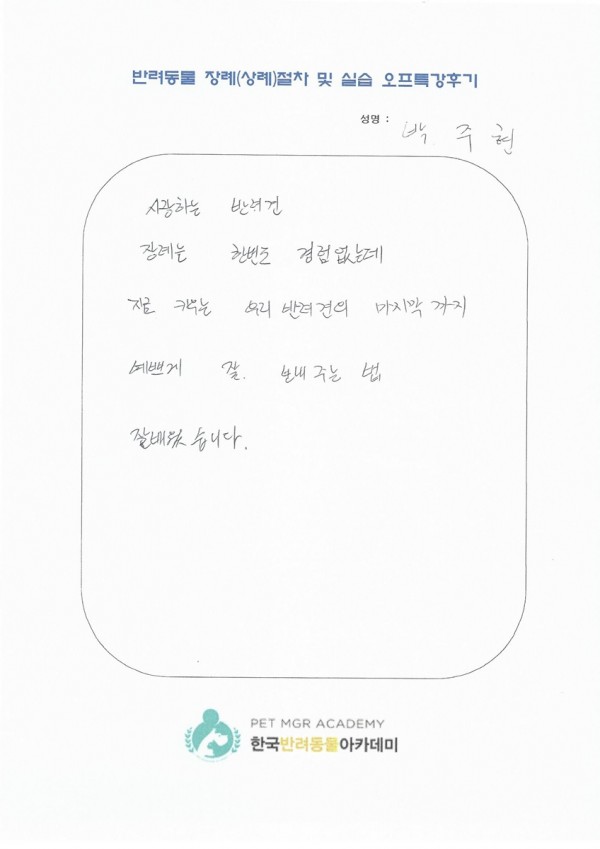 반려동물 장례(상례)절차 및 실습 오프특강후기
성명 : 박 주 현
사랑하는 반려견
장례는 한번도 경험없는데
지금 키우는 우리 반려견의 마지막 까지
예쁘게 잘. 보내 주는 법
잘배웠습니다.
PET MGR ACADEMY
한국반려동물아카데미